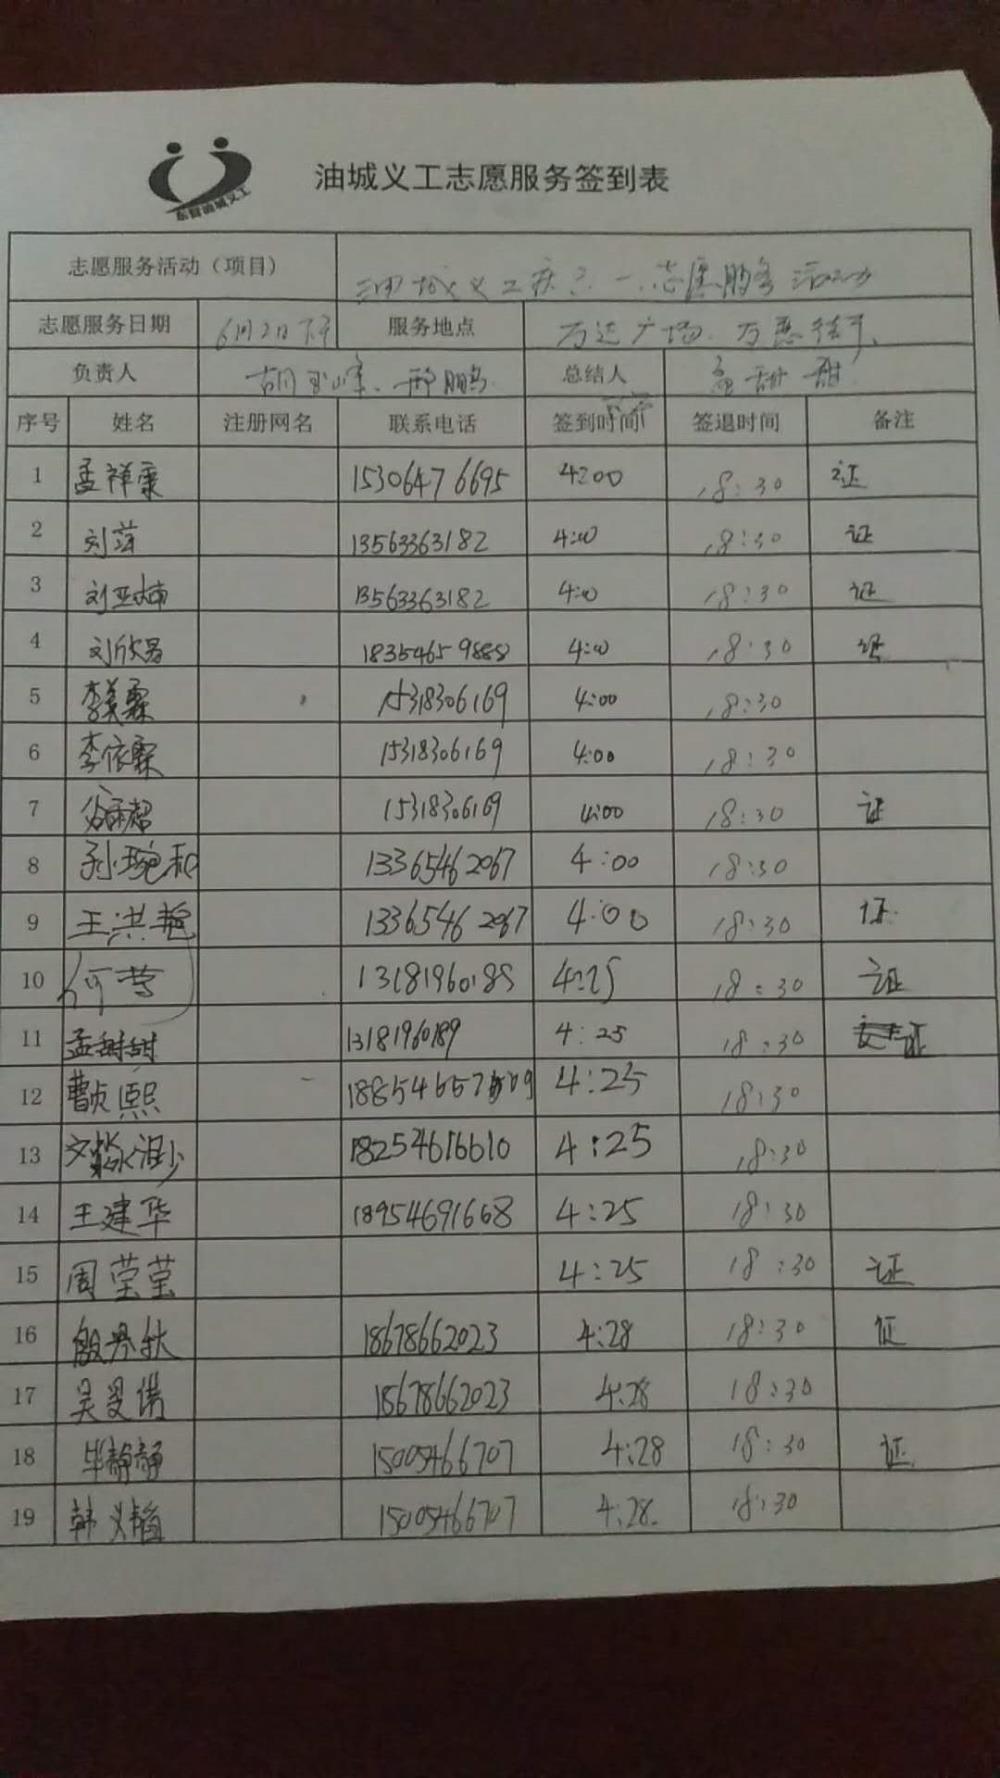 东营油城义工
油城义工志愿服务签到表
志愿服务活动（项目） 油城义工庆六一志愿服务活动
志愿服务日期 6月2日下午 服务地点 万达广场、万惠
负责人 胡玉峰、邢鹏 总结人 孟甜甜
序号 姓名 注册网名 联系电话 签到时间 签退时间 备注
1 孟祥秉 15306476695 4:00 18:30 证
2 刘萍 13563363182 4:00 18:30 证
3 刘亚楠 13563363182 4:00 18:30 证
4 刘欣 18354659888 4:00 18:30 证
5 李美霖 15318306169 4:00 18:30
6 李依霖 15318306169 4:00 18:30
7 15318306169 4:00 18:30 证
8 孙琬和 13365462067 4:00 18:30
9 王洪艳 13365462067 4:00 18:30 证
10 何 13181960189 4:25 18:30 证
11 孟甜甜 13181960189 4:25 18:30 证
12 曹贞熙 4:25 18:30
13 18254616610 4:25 18:30
14 王建华 18954691668 4:25 18:30
15 周莹莹 4:25 18:30 证
16 殷丹秋 18678662023 4:28 18:30 证
17 吴 18678662023 4:28 18:30
18 毕静静 15005466707 4:28 18:30 证
19 韩 15005466707 4:28 18:30